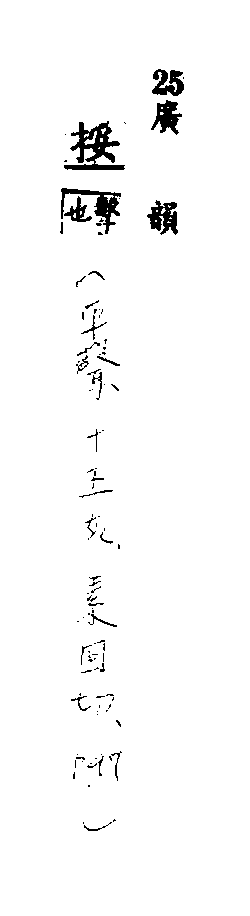 25廣韻
挼 擊也 (平聲、十五灰、素回切、P97)